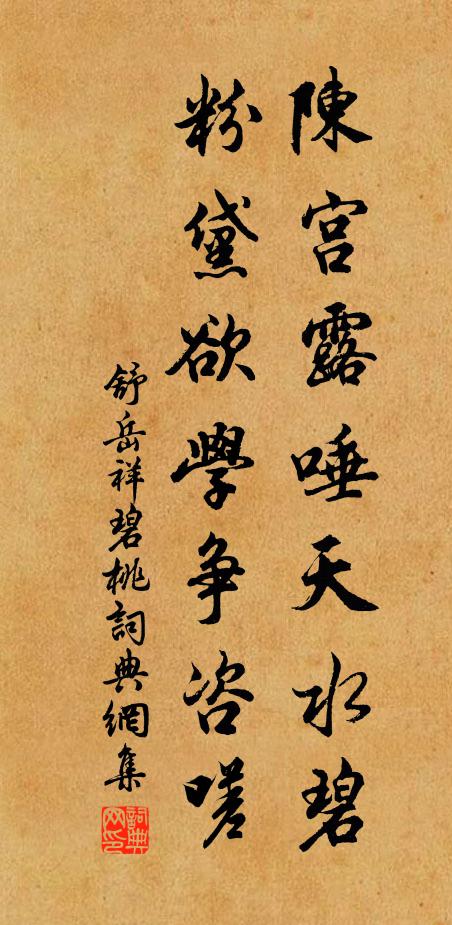 陳宮露唾天水碧
粉黛欲學爭咨嗟
舒岳祥碧桃詞典網集
詞典网印